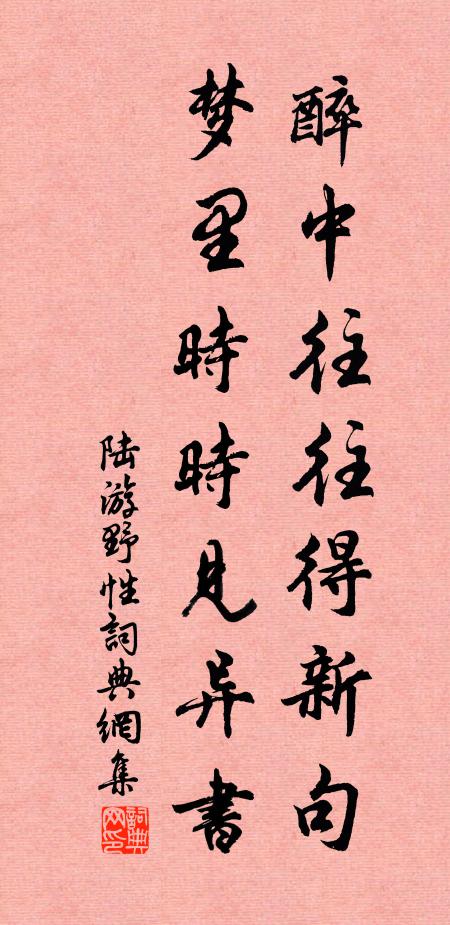 醉中往往得新句
梦里時時見异書
陆游野性詞典網集
詞典网印